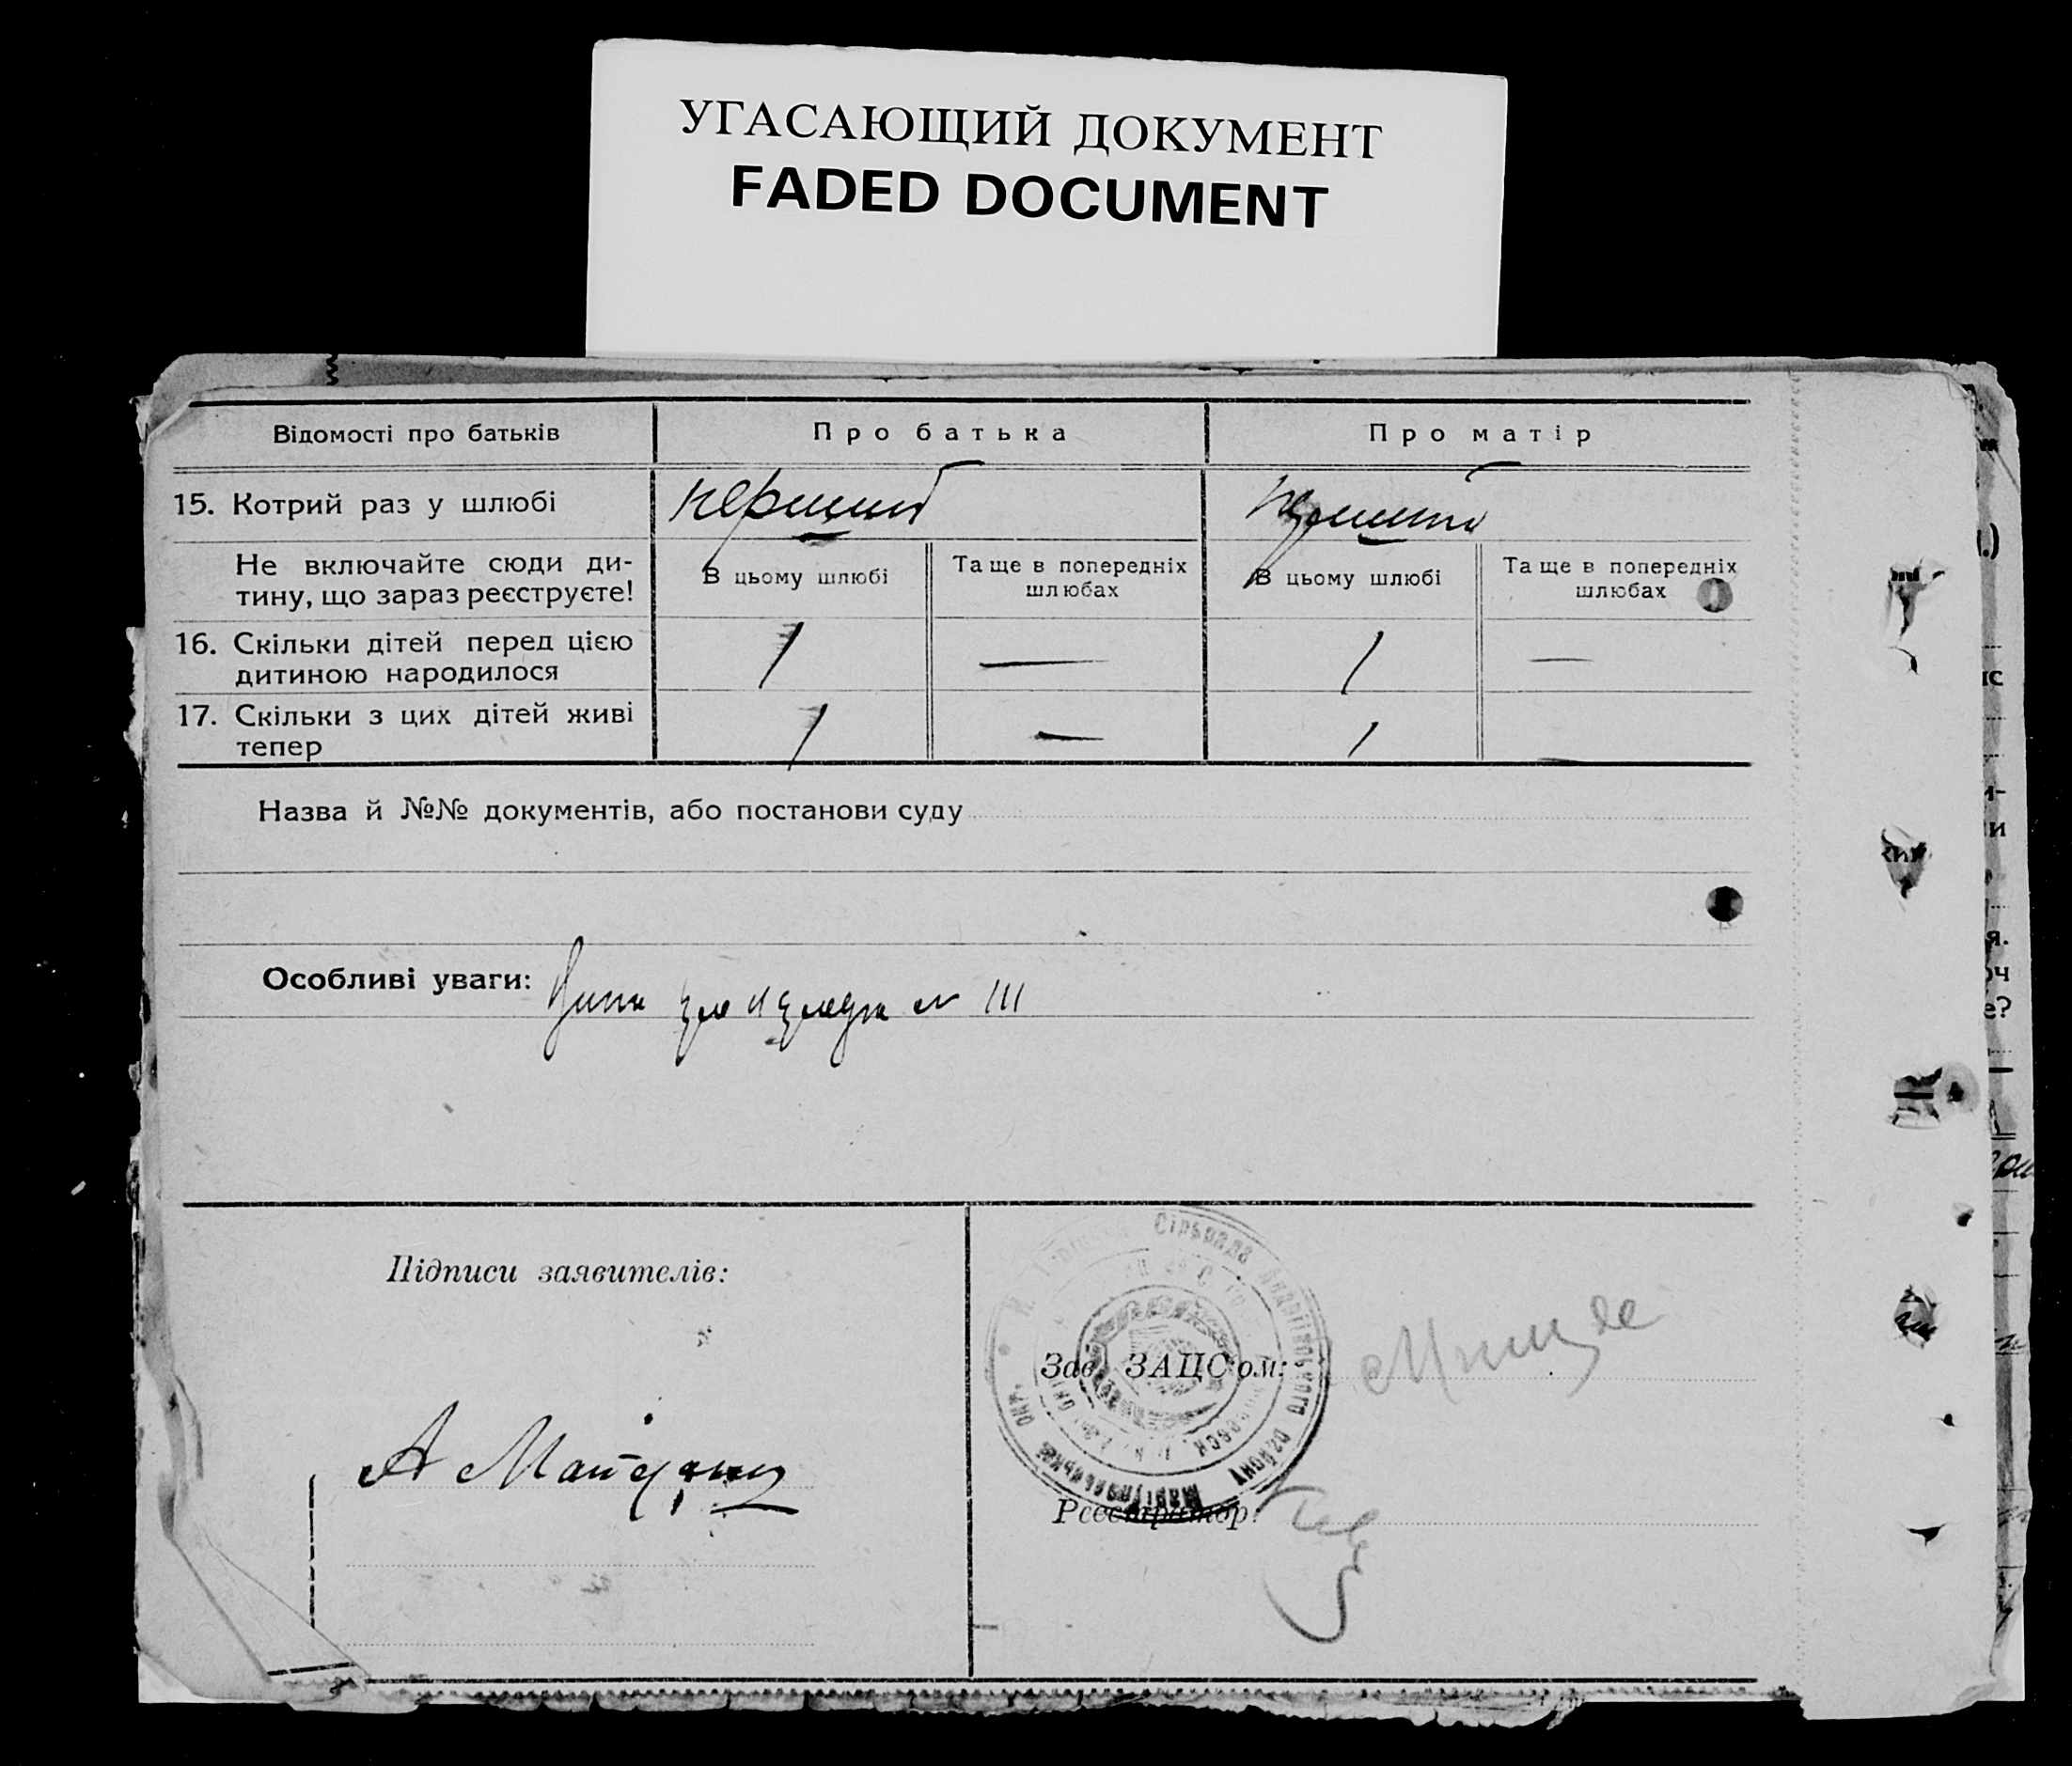 УГАСАЮЩИЙ ДОКУМЕНТ
FADED DOCUMENT
Відомості про батьків
Про батька
Про матір
15. Котрий раз у шлюбі
перший
Не включайте сюди ди-
тину, що зараз реєструєте!
В цьому шлюбі
Та ще в попередніх
шлюбах
В цьому шлюбі
Та ще в попередніх
шлюбах
16. Скільки дітей перед цією
дитиною народилося
1
—
1
—
17. Скільки з цих дітей живі
тепер
1
—
1
—
Назва й №№ документів, або постанови суду
Особливі уваги:
№ III
Підписи заявителів:
Сільрада
району
Маріупольської окр.
Зав. ЗАЦС'ом:
А
Реєстратор: